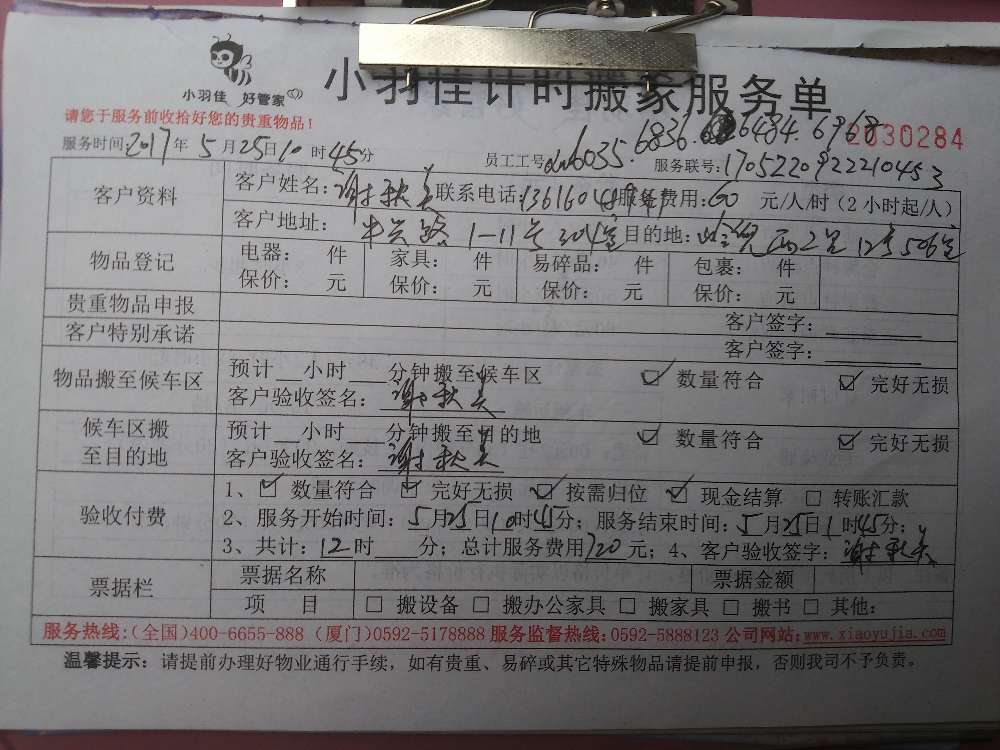 小羽佳 好管家
小羽佳计时搬家服务单
请您于服务前收拾好您的贵重物品！
2030284
服务时间：2017年5月25日10时45分
员工工号 6035. 6836. 6484. 6968
服务联号：170522092221０453
客户资料 客户姓名：谢秋美 联系电话：1361604 服务费用：60 元/人/时（2小时起/人）
客户地址： 路1-11号304室 目的地： 12号506室
物品登记 电器： 件 家具： 件 易碎品： 件 包裹： 件
保价： 元 保价： 元 保价： 元 保价： 元
贵重物品申报 客户签字：
客户特别承诺 客户签字：
物品搬至候车区 预计__小时__分钟搬至候车区 ☑ 数量符合 ☑ 完好无损
客户验收签名：谢秋美
候车区搬至目的地 预计__小时__分钟搬至目的地 ☑ 数量符合 ☑ 完好无损
客户验收签名：谢秋美
验收付费 1、☑ 数量符合 ☑ 完好无损 ☑ 按需归位 ☑ 现金结算 □ 转账汇款
2、服务开始时间：5月25日10时45分；服务结束时间：5月25日1时45分；
3、共计：12时__分；总计服务费用720元；4、客户验收签字：谢秋美
票据栏 票据名称 票据金额
项 目 □ 搬设备 □ 搬办公家具 □ 搬家具 □ 搬书 □ 其他：
服务热线：(全国)400-6655-888 (厦门)0592-5178888 服务监督热线：0592-5888123 公司网站：www.xiaoyujia.com
温馨提示：请提前办理好物业通行手续，如有贵重、易碎或其它特殊物品请提前申报，否则我司不予负责。